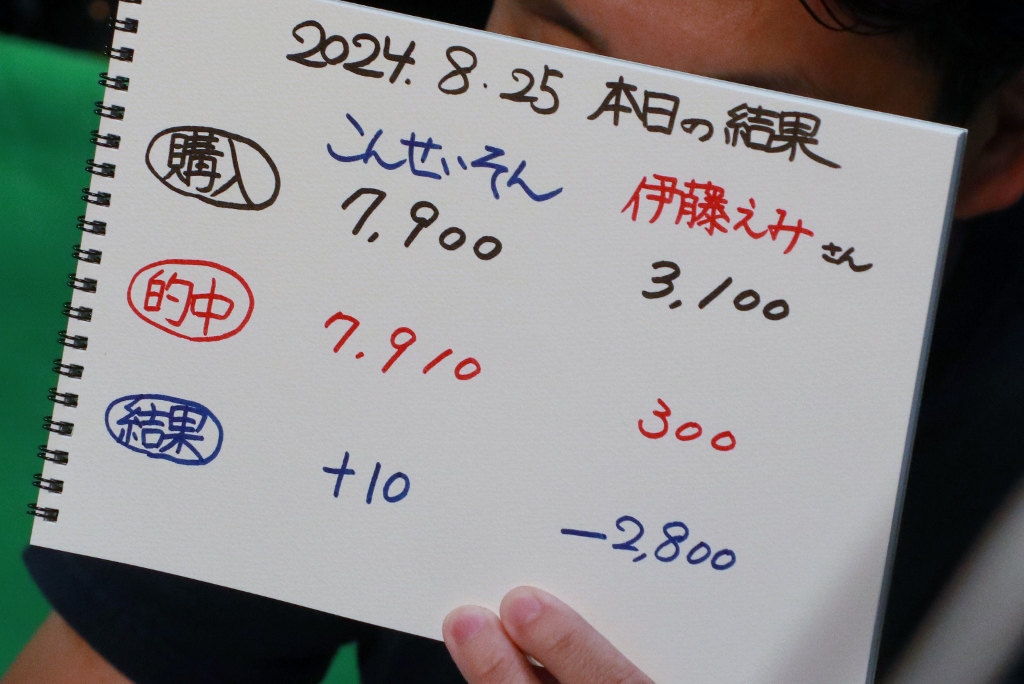 2024.8.25 本日の結果
こんせいそん 伊藤えみさん
購入 7,900 3,100
的中 7.910 300
結果 +10 -2,800